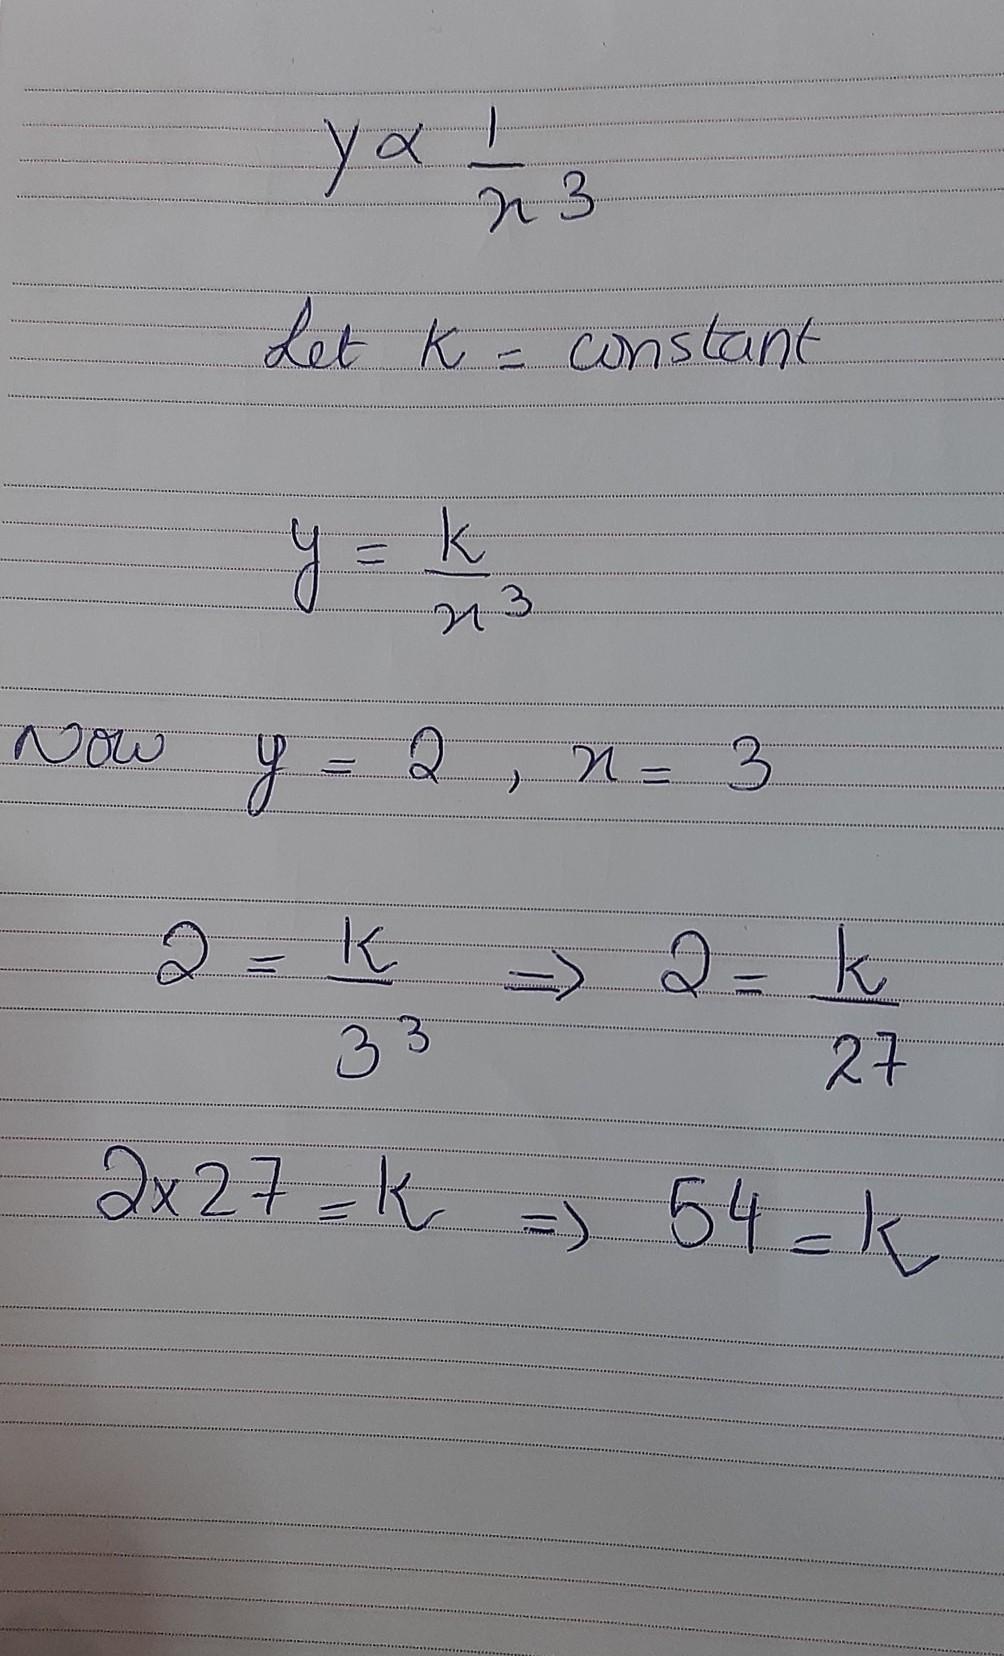 y ∝ 1/x³
Let k = constant
y = k/x³
Now y = 2 , x = 3
2 = k/3³ ⇒ 2 = k/27
2×27 = k ⇒ 54 = k